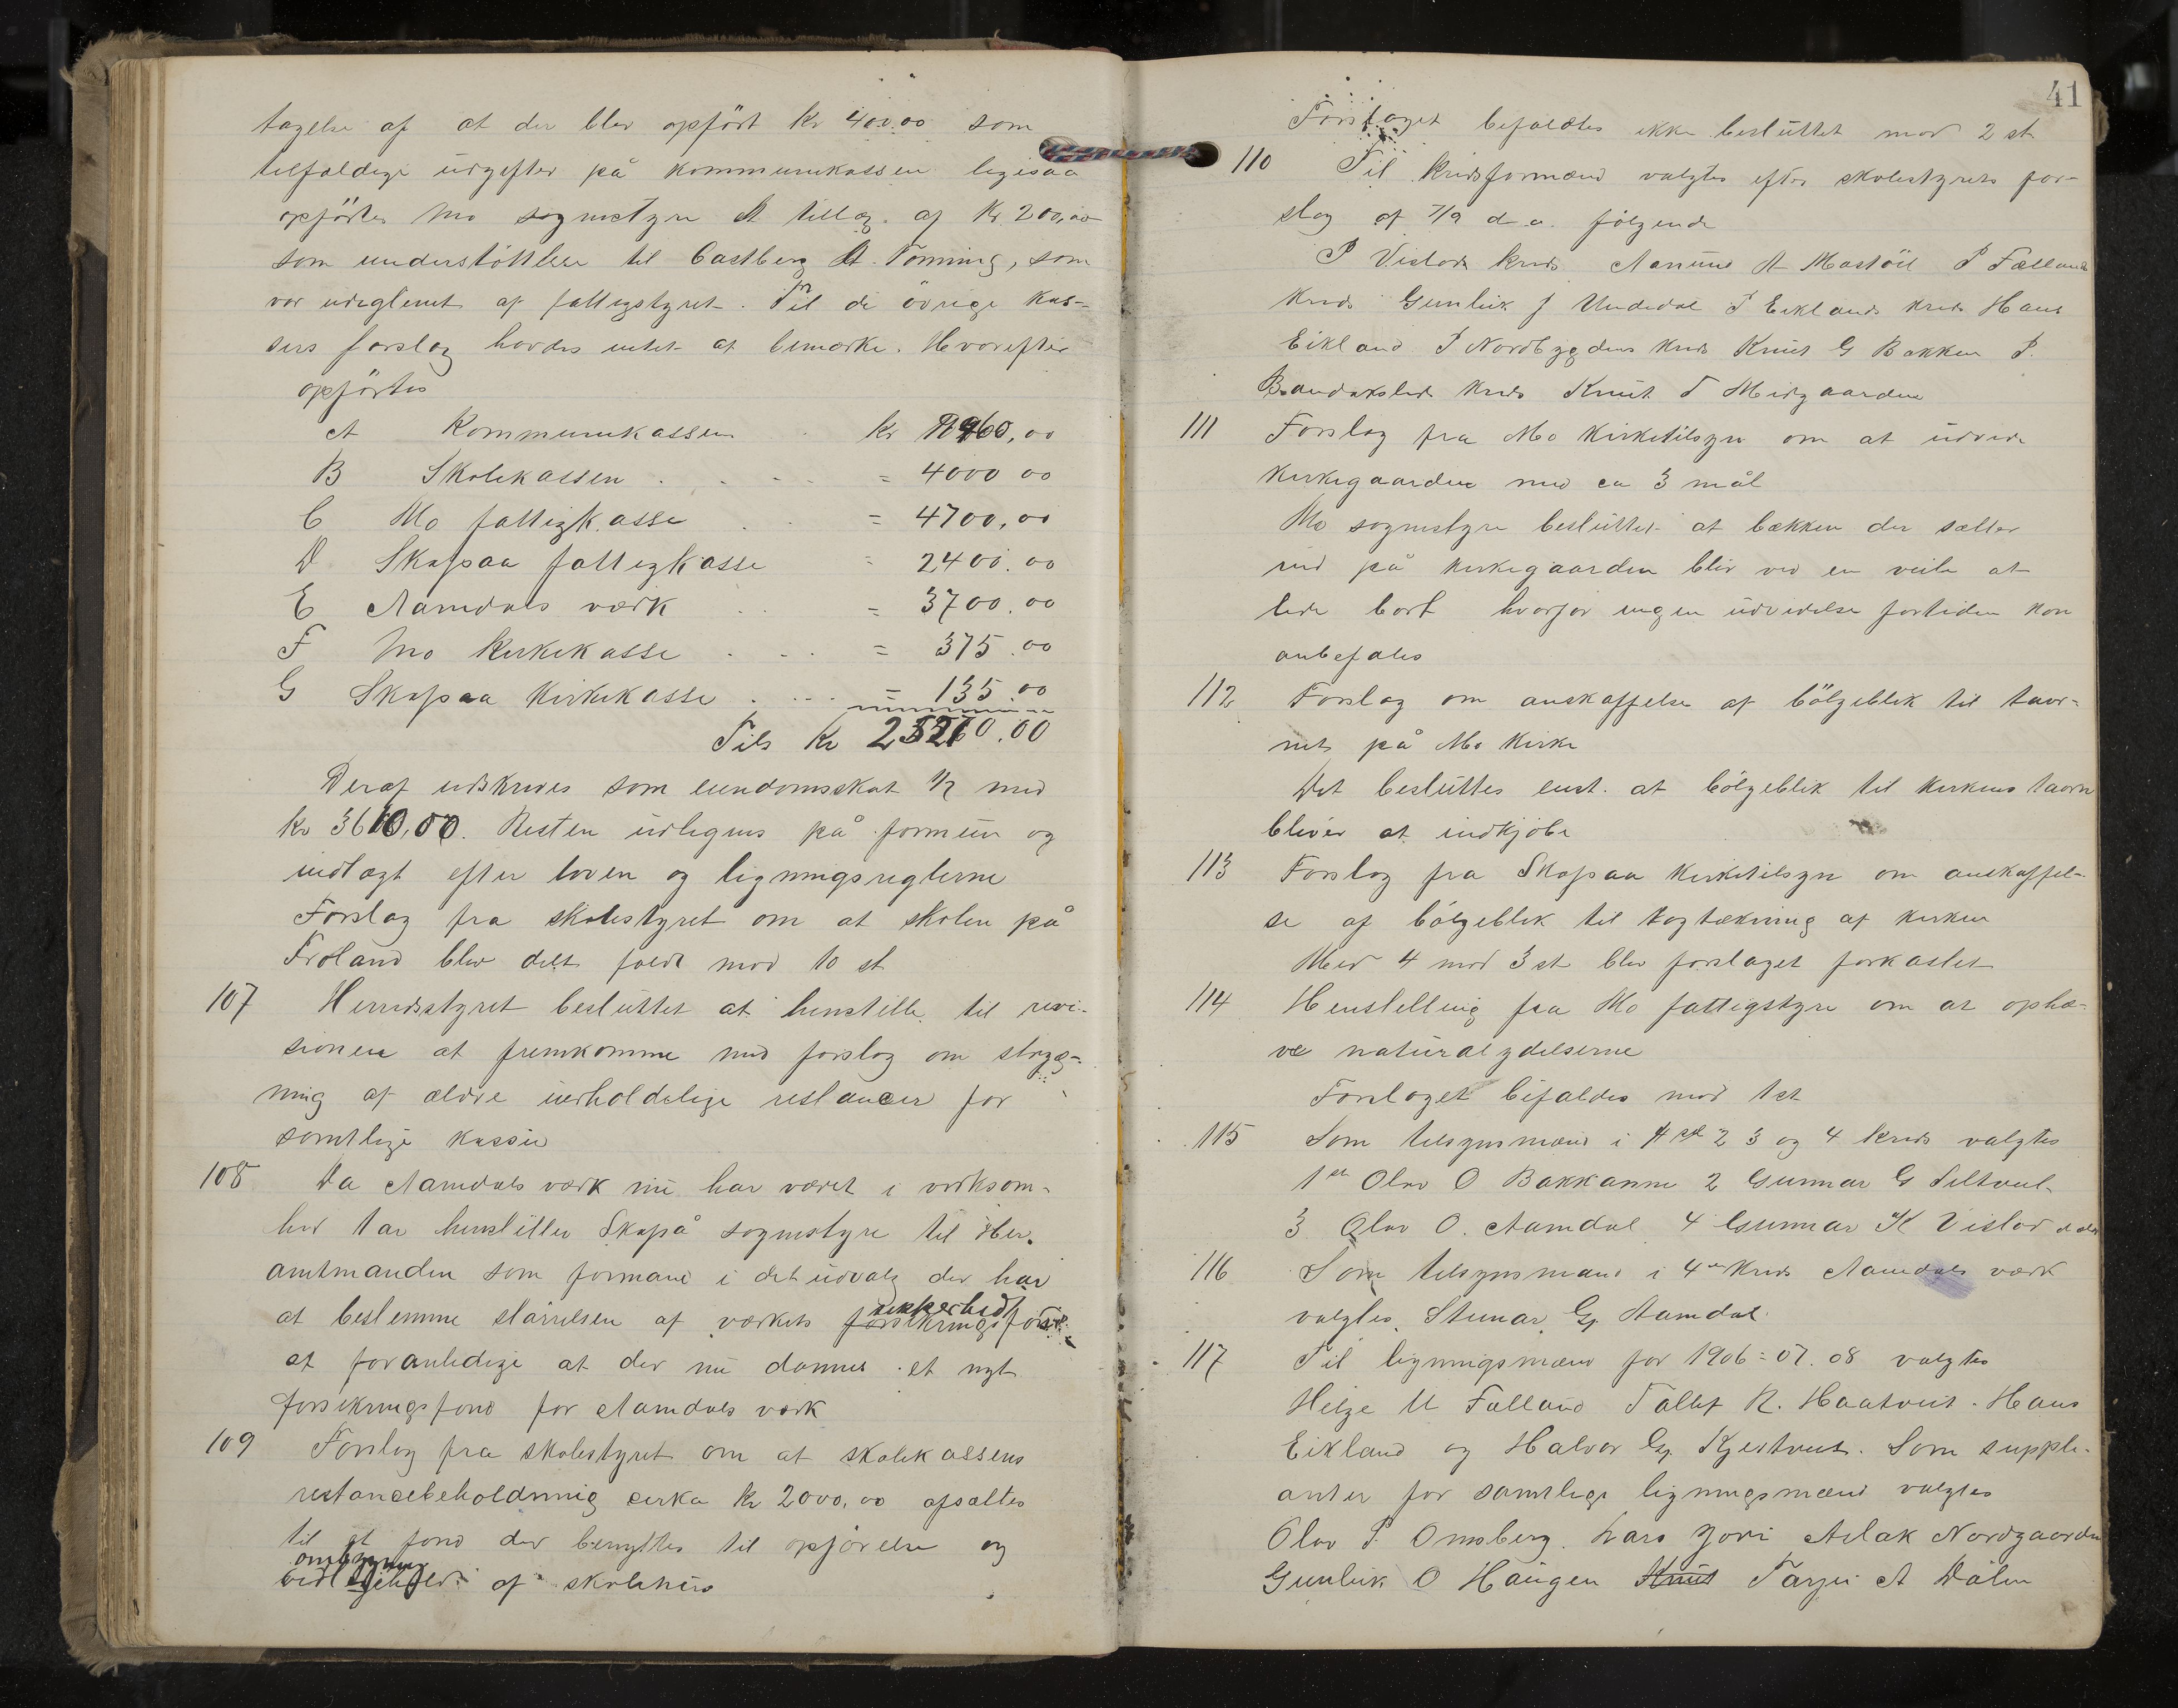 tagelse af at der blev opfört Kr 400.00 som
tilfældige üdgifter på Kommunekassen ligesaa
opförtes Mo sognestyre et tillæg af Kr. 200,00
som understöttelse til Castberg A. Tönning, som
var udeglemt af fattigstyret. Til de övrige kas-
sers forslag havdes intet at bemærke. Hvorefter
opförtes
A Kommunekassen Kr 960,00
B Skolekassen . . . . = 4000 00
C Mo fattigkasse . . = 4700,00
D Skafsaa fattigkasse = 2400.00
E Aamdals værk . . = 3700.00
F Mo Kirkekasse . . . = 375.00
G Skafsaa Kirkekasse . ... = 135.00
Tils Kr .00
Deraf udskrives som eiendomsskat 1/2 med
Kr 3610,00. Resten üdlignes på formüe og
indtægt efter loven og ligningsreglerne
Forslag fra skolestyret om at skolen på
Froland blev delt faldt mod 10 st
107 Herredsstyret beslüttet at henstille til revi-
sionen at fremkomme med forslag om stryg-
ning af ældre üerholdelige restancer for
samtlige kasser
108 Da Aamdals værk nü har været i virksom-
hed 1 aar henstiller Skafså sognestyre til Her.
amtmanden som formand i det üdvalg der har
sikkerheds
at bestemme störrelsen af værkets forsikringsfond
at foranledige at der nü dannes et nyt
forsikringsfond for Aamdals værk
109 Forslag fra skolestyret om at skolekassens
restancebeholdning cirka Kr 2000,00 afsættes
til et fond der benyttes til opförelse og
ombygning
af skolehüs
41
Forslaget befaldtes ikke beslüttet mod 2 st
110 Til Kredsformænd valgtes efter skolestyrets for-
slag af 7/9 d. a. fölgende
P Vistad Kreds Aanünd A Mastöil P Fælland
Kreds Gunleik J Undedal P Eiklands kreds Hans
Eikland P Nordbygdens Kreds Knüt G Bakken P.
Bandakslid Kreds Knüt T Midgaarden
111 Forslag fra Mo Kirketilsyn om at üdvide
Kirkegaarden med ca 3 mål
Mo sognestyre beslütter at bækken der sætter
ind på kirkegaarden blir ved en veite at
lede bort hvorfor ingen üdvidelse fortiden kan
anbefales
112 Forslag om anskaffelse af bölgeblik til taar-
net på Mo Kirke
Det beslüttes enst. at bölgeblik til kirkens taarn
bliver at indkjöbe
113 Forslag fra Skafsaa Kirketilsyn om anskaffel-
se af bölgeblik til tagtækning af kirken
Med 4 mod 3 st blev forslaget forkastet
114 Henstelling fra Mo fattigstyre om at ophæ-
ve naturalydelserne
Forslaget bifaldes mod 1 st
115 Som tilsynsmænd i 2 3 og 4 Kreds valgtes
1ste Olav O Bakkanne 2 Gunnar G
3 Olav O. Aamdal 4 Gunnar K Vistad
116 Som tilsynsmand i 4de Kreds Aamdals værk
valgtes Steinar G. Aamdal
117 Til ligningsmænd for 1906=07.08 valgtes
Helge U Fælland Tallef R. Haatveit. Hans
Eikland og Halvor G. Kjestveit. Som supple-
anter for samtlige ligningsmænd valgtes
Olav P. Omsberg. Lars Jori Aslak Nordgaarden
Gunleik O Haugen Knüt Tarjei A Dalen